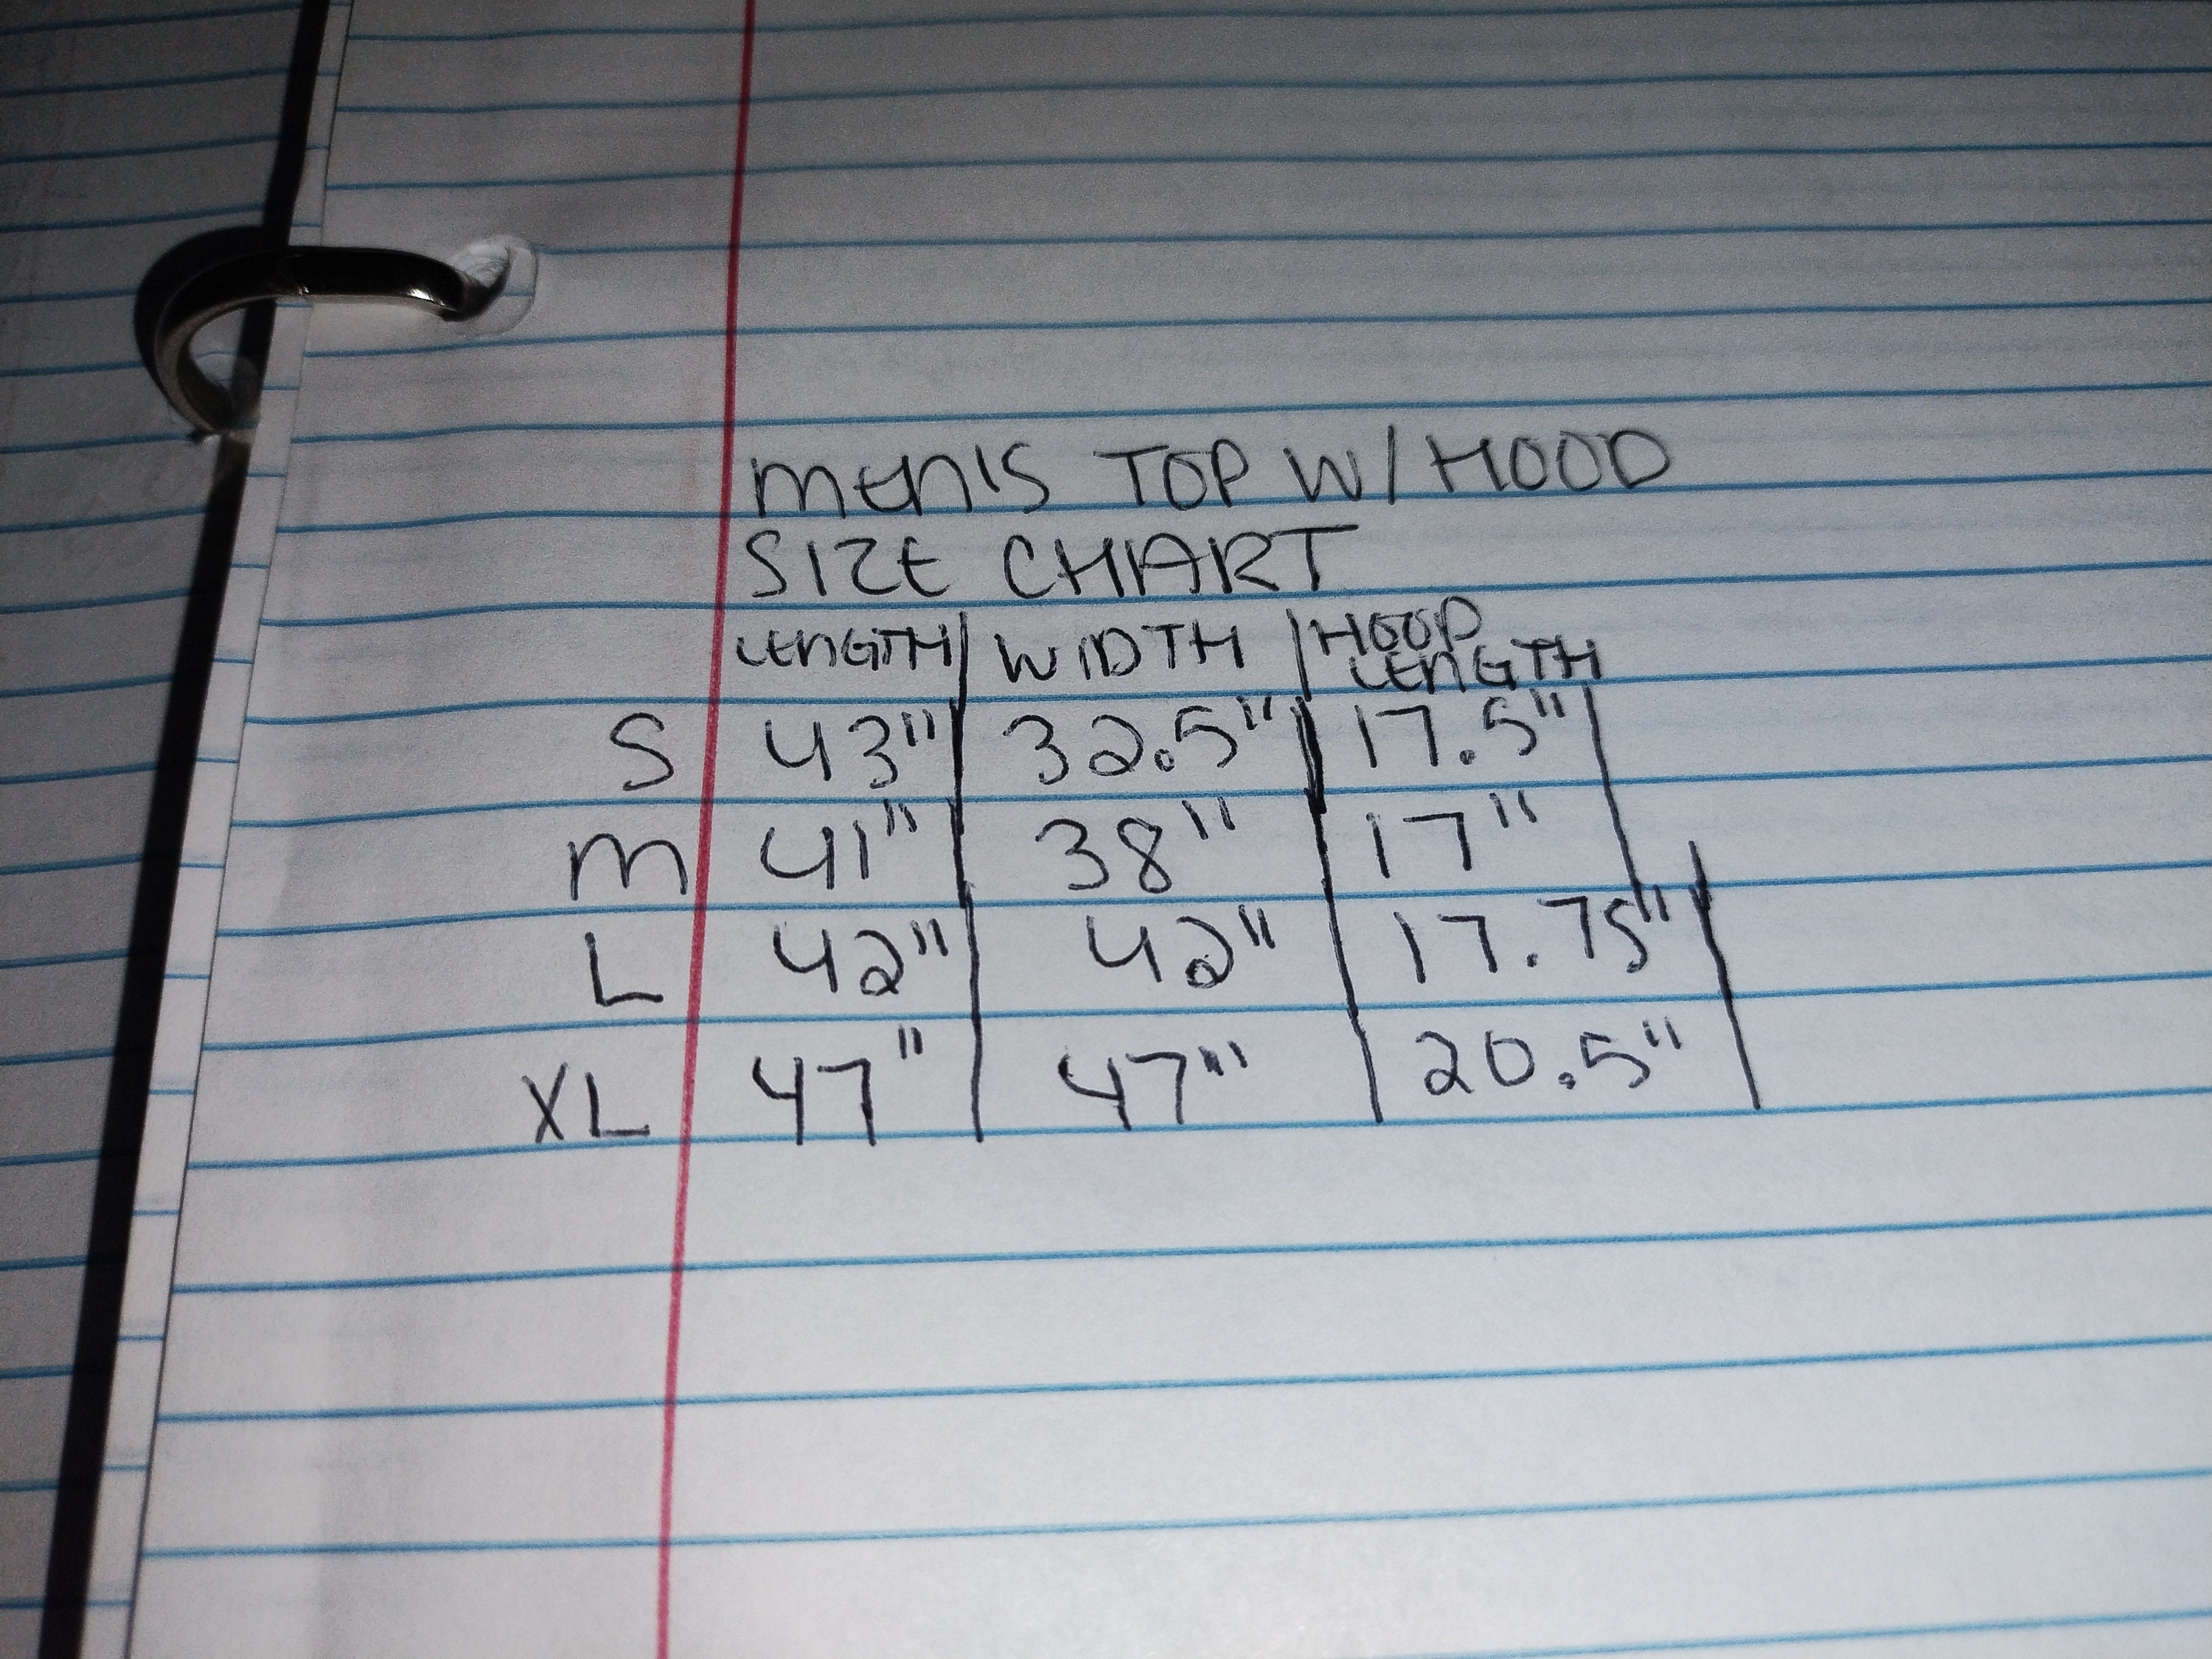 MEN'S TOP W/ HOOD
SIZE CHART
LENGTH | WIDTH | HOOD LENGTH
S 43" | 32.5" | 17.5" |
M 41" | 38" | 17" |
L 42" | 42" | 17.75" |
XL 47" | 47" | 20.5" |